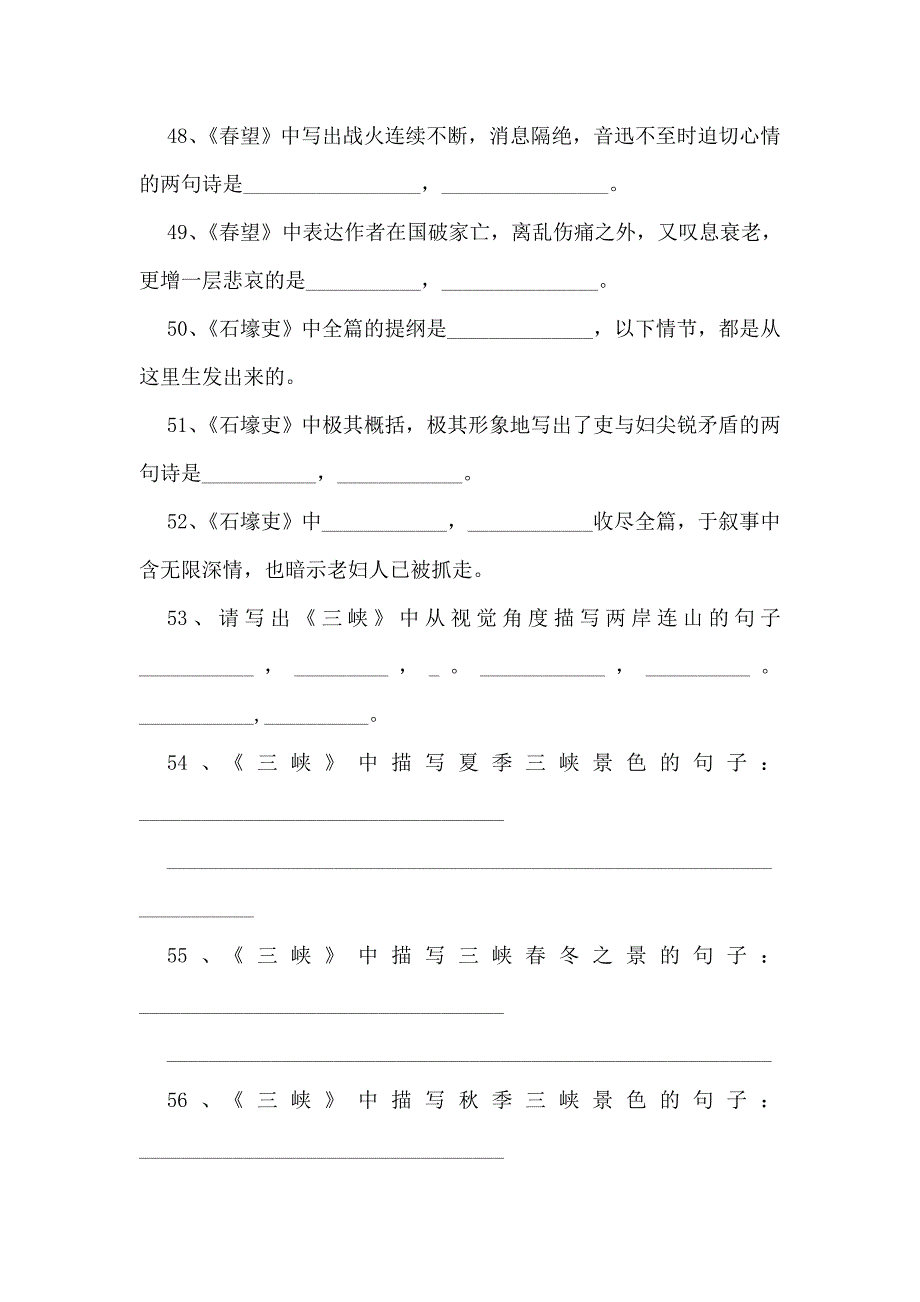 48、《春望》中写出战火连续不断，消息隔绝，音迅不至时迫切心情
的两句诗是_________________，________________。
49、《春望》中表达作者在国破家亡，离乱伤痛之外，又叹息衰老，
更增一层悲哀的是___________，_______________。
50、《石壕吏》中全篇的提纲是______________，以下情节，都是从
这里生发出来的。
51、《石壕吏》中极其概括，极其形象地写出了吏与妇尖锐矛盾的两
句诗是___________，____________。
52、《石壕吏》中____________，____________收尽全篇，于叙事中
含无限深情，也暗示老妇人已被抓走。
53、请写出《三峡》中从视觉角度描写两岸连山的句子
___________，_________，_。____________，__________。
___________,__________。
54、《三峡》中描写夏季三峡景色的句子：
___________________________________
__________________________________________________________
___________
55、《三峡》中描写三峡春冬之景的句子：
___________________________________
__________________________________________________________
56、《三峡》中描写秋季三峡景色的句子：
___________________________________